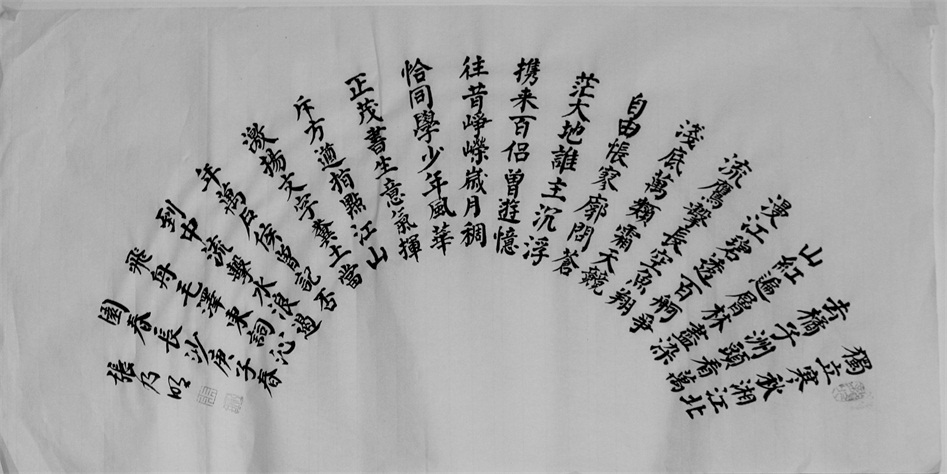 獨立寒秋湘江北
去橘子洲頭看萬
山紅遍層林盡染
漫江碧透百舸爭
流鷹擊長空魚翔
淺底萬類霜天競
自由悵寥廓問蒼
茫大地誰主沉浮
携来百侶曾遊憶
往昔崢嶸歲月稠
恰同學少年風華
正茂書生意氣揮
斥方遒指點江山
激揚文字糞土當
年萬戶侯曾記否
到中流擊水浪遏
飛舟毛澤東詞沁
園春長沙庚子春
張乃